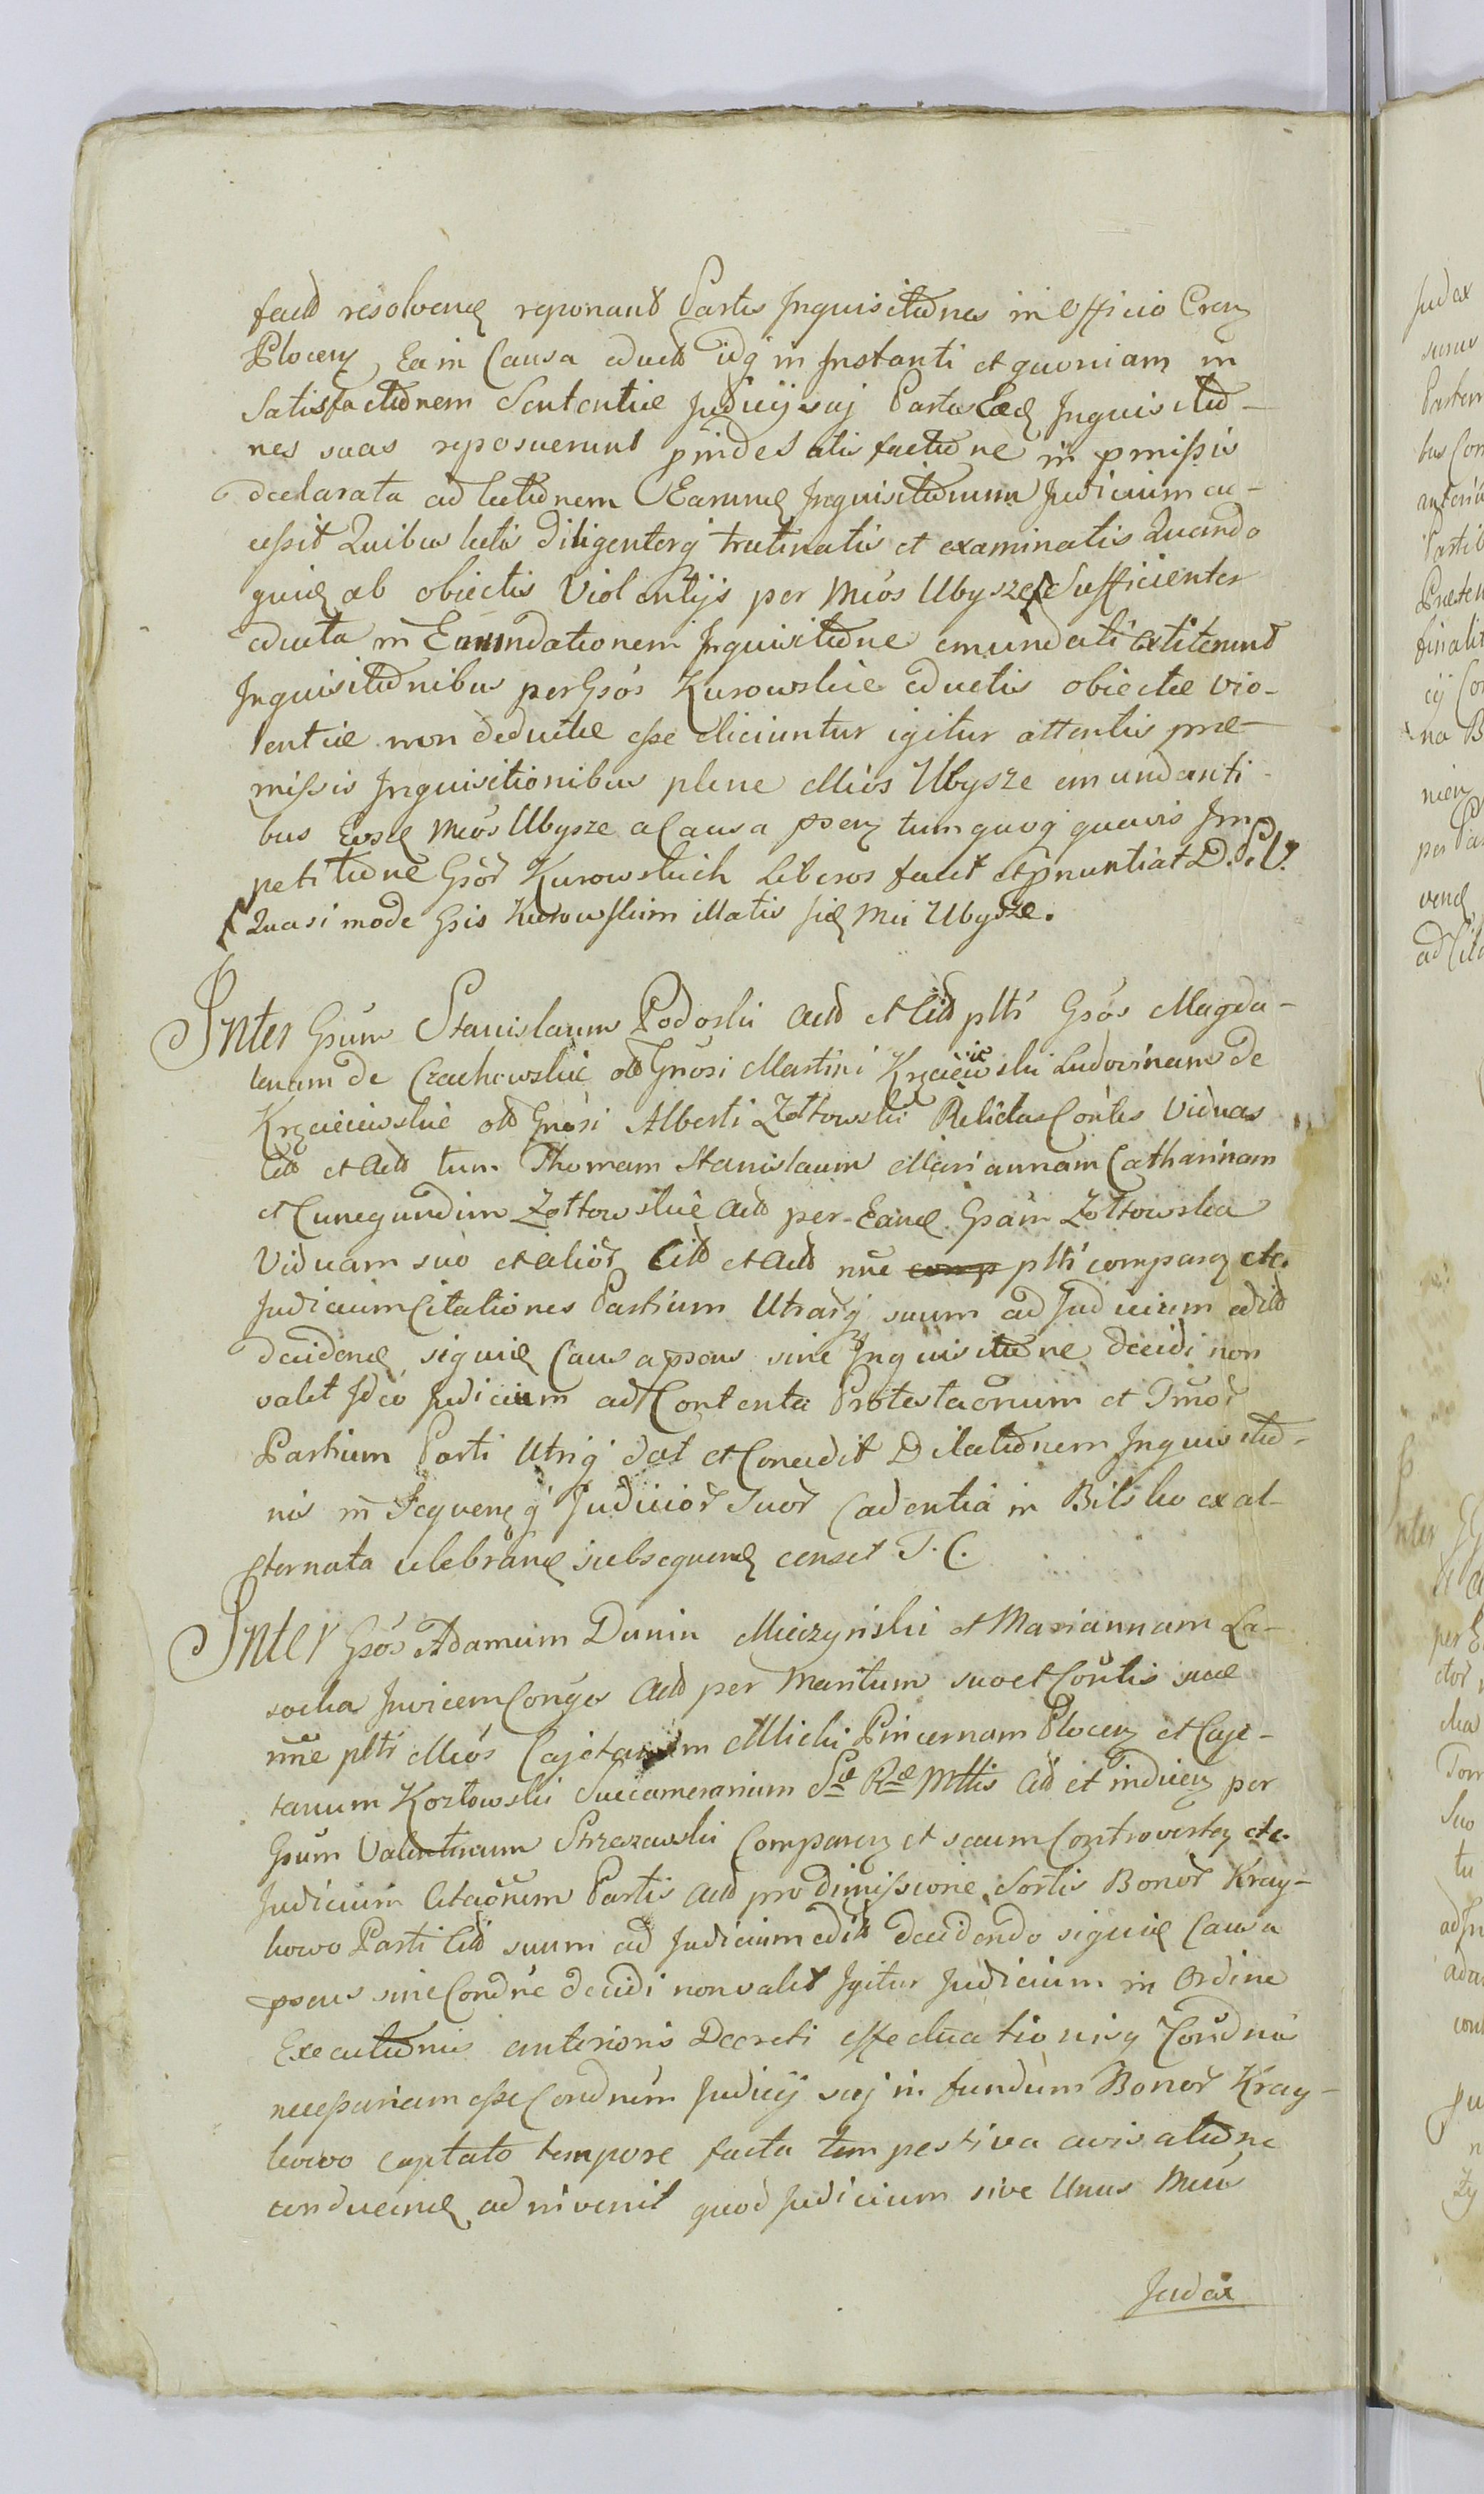 facto resolvenę reponant Partes Inquisitiones in Officio Crenẓ
Plocenẓ, Ea in Causa educto idq̃ in Instanti et quoniam in
Satisfactionem Sententiæ Judicij suj Partes Eædę Inquisitio-
nes suas reposuerunt p̃inde satisfactione in p̃missis
declarata ad lectionem Earumdę Inquisitionum Judicium ac-
cessit Quibus lectis Diligenterq̃ trutinatis et examinatis Quando
quidę ab obiectis Violentijs per Mcos Ubysze Sufficienter
educta in Emundationem Inquisitione emundati extiterunt
Inquisitionibus per Gsos Kurowskie eductis obiectæ vio-
lentiæ non deductæ esse eliciuntur igitur attentis præ-
missis Inquisitionibus plene Mcos Ubysze emundanti-
bus Eosdę Mcos Ubysze a Causa p̃senẓ tum quoq̃ quavis Im-
petitione Gsor Kurowskich Liberos facit et p̃nuntiat D. P. V.
Quasi mode Gsis Kurowskim illatis sidę Mci Ubysze.
Inter Gsum Stanislaum Podoski Acto et Cito plti Gsos Magda-
lenam de Czachowskie olo Gnosi Martini Krzciciewski Ludovinam de
Krzciciewskie olo Gnosi Alberti Zołtowski Relictas Contes Viduas
Cito et Acto tum Thomam Stanislaum Mariannam Catharinam
et Cunegundim Zołtowskie Acto per Eandę Gsam Zołtowska
Viduam suo et alior Cito et Acto nne comp plti comparẓ etc.
Judicium Citationes Partium Utrarq̃ suum ad Judicium edito
decidendę siquidę Causa p̃sens sine Inquisitione decidi non
valet Ideo Judicium ad Contenta Protestaõnum et Tmor
Partium Parti Utriq̃ dat et Concedit Dilationem Inquisitio-
nis in Sequenẓ q̃ Judicior Suor Cadentia in Bilsko ex al-
ternata celebrandę subsequendę censet T. C.
Inter Gsos Adamum Dunin Mieczyński et Mariannam La-
socka Invicem Conges Acto per Maritum suo et Contis suæ
nne plti Mcos Cajetanum Mlicki Pincernam Plocenẓ et Caje-
tanum Kozłowski Succamerarium Sæ Ræ Mttis Cito et inducenẓ per
Gsum Valentinum Strzezewski Comparenẓ et secum Controvertenẓ etc.
Judicium Citaõnem Partis Acto pro dimissione Sortis Bonor Kray-
kowo Parti Cito suum ad Judicium edito decidendo siquidę Causa
p̃sens sine Condne decidi non valet Igitur Judicium in Ordine
Executionis anterioris Decreti effectuationisq̃ Condnis
necessariam esse Condnem Judicij suj in fundum Bonor Kray-
kowo captato tempore facta tempestiva avisatione
conducendę ad invenit quod Judicium sive Unus Mcus
Judex